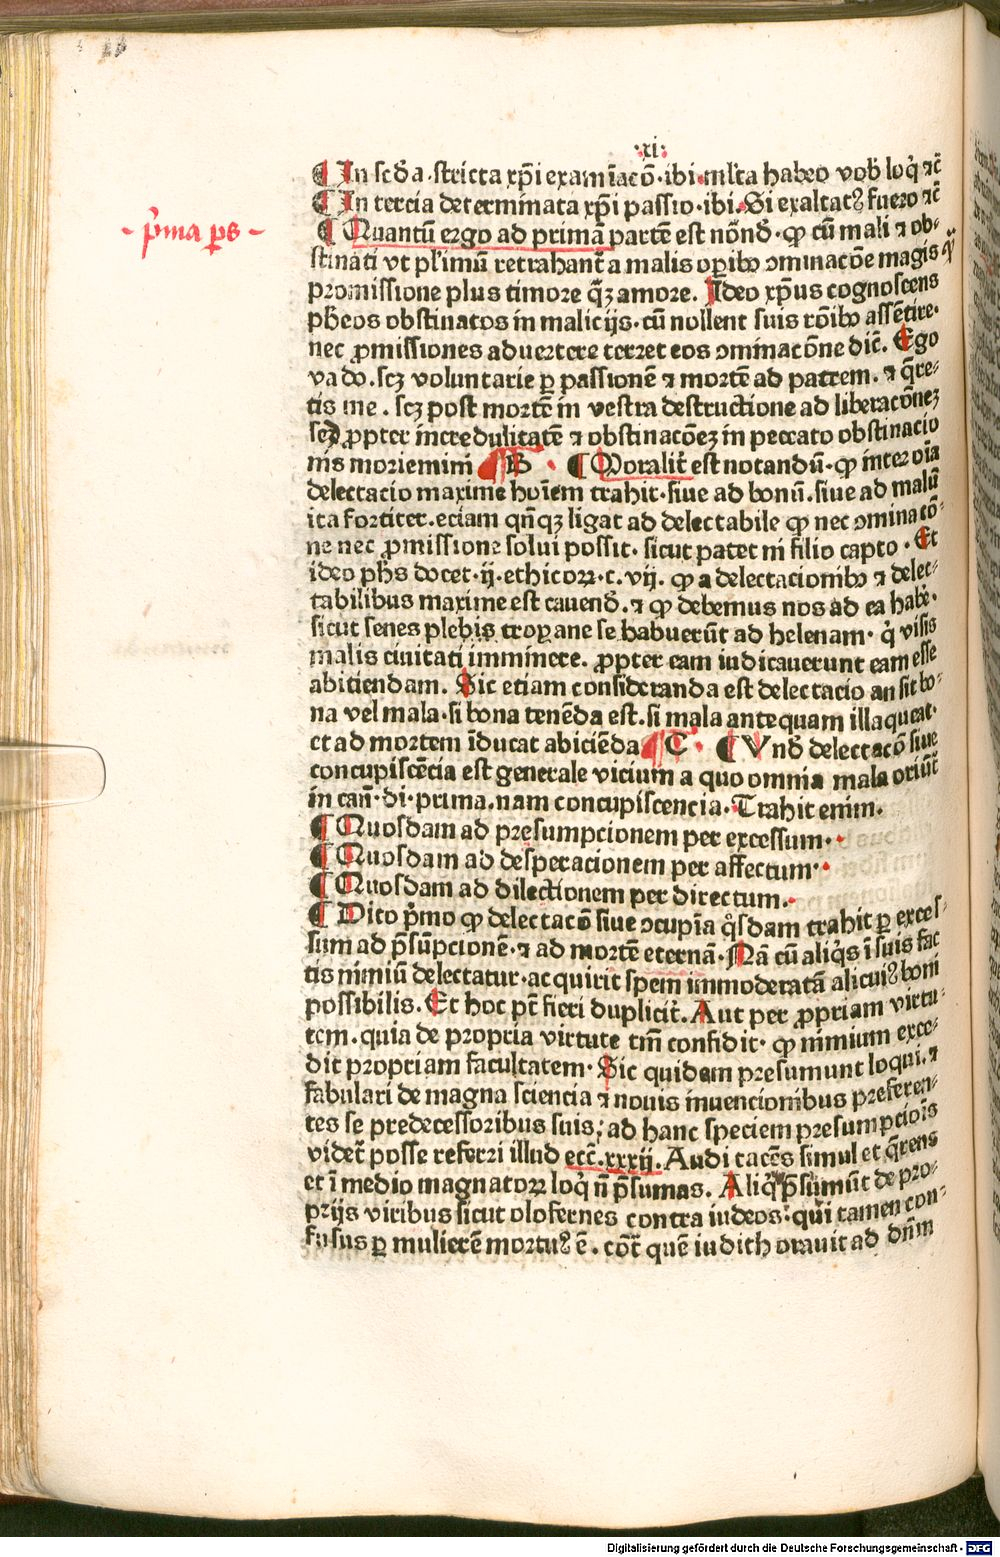 ·xi·
¶ In scd̄a .stricta xp̄i examīacō·ibi·ml̄ta habeo vob̄ loq̄ ⁊c̄
¶ In tercia determinata xp̄i passio·ibi.Si exaltatꝰ fuero ⁊c̄
·p̄ma ps·
¶ Quantū ergo ad primā partē est nōnd̄·ꝙ cū mali ⁊ ob⸗
stinati vt pl̄imū retrahant̄ a malis oꝑibꝯ ↄminacōe magis q̄ꝫ
promissione plus timore q̄ꝫ amore. Ideo xp̄us cognoscens
ph̄eos obstinatos in malicijs·cū nollent suis rōibꝯ assētire·
nec ꝓmissiones aduertere terret eos ↄminacōne dic̄. Ego
vado.scꝫ voluntarie ꝑ passionē ⁊ mortē ad patrem.⁊ q̄re⸗
tis me.scꝫ post mortē in vestra destructione ad liberacōneꝫ
seꝫ ꝓpter incredulitatē ⁊ obstinacōeꝫ in peccato obstinacio
nis moriemini ¶ B · ¶ Moralit̄ est notandū·ꝙ inter oīa
delectacio maxime hoīem trahit·siue ad bonū.siue ad malū
ita fortiter.eciam qn̄qꝫ ligat ad delectabile ꝙ nec ↄminacō⸗
ne nec ꝓmissione solui possit·sicut patet ni filio capto·Et
ideo ph̄s docet·ij·ethicoꝝ·c.vij.ꝙ a delectacionibꝯ ⁊ delec⸗
tabilibus maxime est cauend̄.⁊ ꝙ debemus nos ad ea habē·
sicut senes plebis troꝑane se habuerūt ad helenam·q̄ visis
malis ciuitati imminere. ꝓpter eam iudicauerunt eam esse
abiciendam. Sic etiam consideranda est delectacio an sit bo⸗
na vel mala·si bona tenēda est.si mala antequam illaqueat·
et ad mortem īducat abiciēda ¶ C · ¶ Vnd̄ delectacō siue
concupiscēcia est generale vicium a quo omnia mala oriūt̄
in can̄·di·prima.nam concupiscencia.Trahit enim.
¶ Quosdam ad presumpcionem per excessum·
¶ Quosdam ad desperacionem per affectum·
¶ Quosdam ad dilectionem per directum.
¶ Dico p̄mo ꝙ delectacō siue ↄcupīa q̄sdam trahit ꝑ exces⸗
sum ad p̄sūpcionē·⁊ ad mortē eternā·Nā cū aliq̄s ī suis fac
tis nimiū delectatur·acquirit spem immoderatā alicuiꝰ boni
possibilis. Et hoc pt̄ fieri duplicit̄. Aut per ꝓpriam virtu⸗
tem.quia de propria virtute tm̄ confidit·ꝙ nimium exce⸗
dit propriam facultatem·Sic quidam presumunt loqui.⁊
fabulari de magna sciencia ⁊ nouis inuencionibus preferen⸗
tes se predecessoribus suis; ad hanc speciem presumpciois̄
videt̄ posse referri illud ecc̄.xxxij. Audi tacēs simul et q̄rens
et ī medio magnatoꝝ loq̄ n̄ p̄sumas. Aliq̄ p̄sumūt de pro⸗
prijs viribus sicut olofernes contra iudeos·qui tamen con⸗
fusus ꝑ mulierē mortuꝰ ē.cōt̄ quē iudith orauit ad dn̄m
Digitalisierung gefördert durch die Deutsche Forschungsgemeinschaft - DFG